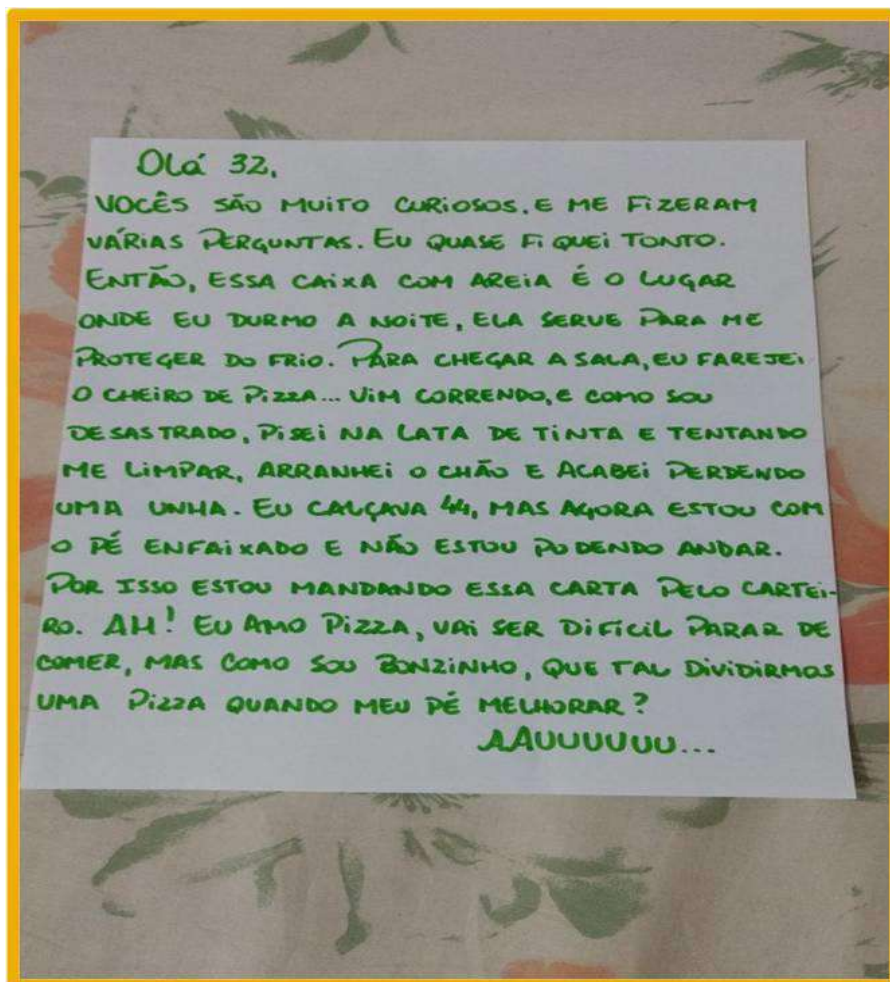 Olá 32,
VOCÊS SÃO MUITO CURIOSOS. E ME FIZERAM
VÁRIAS PERGUNTAS. EU QUASE FIQUEI TONTO.
ENTÃO, ESSA CAIXA COM AREIA É O LUGAR
ONDE EU DURMO A NOITE, ELA SERVE PARA ME
PROTEGER DO FRIO. PARA CHEGAR A SALA, EU FAREJEI
O CHEIRO DE PIZZA... VIM CORRENDO, E COMO SOU
DESASTRADO, PISEI NA LATA DE TINTA E TENTANDO
ME LIMPAR, ARRANHEI O CHÃO E ACABEI PERDENDO
UMA UNHA. EU CALÇAVA 44, MAS AGORA ESTOU COM
O PÉ ENFAIXADO E NÃO ESTOU PODENDO ANDAR.
POR ISSO ESTOU MANDANDO ESSA CARTA PELO CARTEI-
RO. AH! EU AMO PIZZA, VAI SER DIFÍCIL PARAR DE
COMER, MAS COMO SOU BONZINHO, QUE TAL DIVIDIRMOS
UMA PIZZA QUANDO MEU PÉ MELHORAR?
AAUUUUUU...